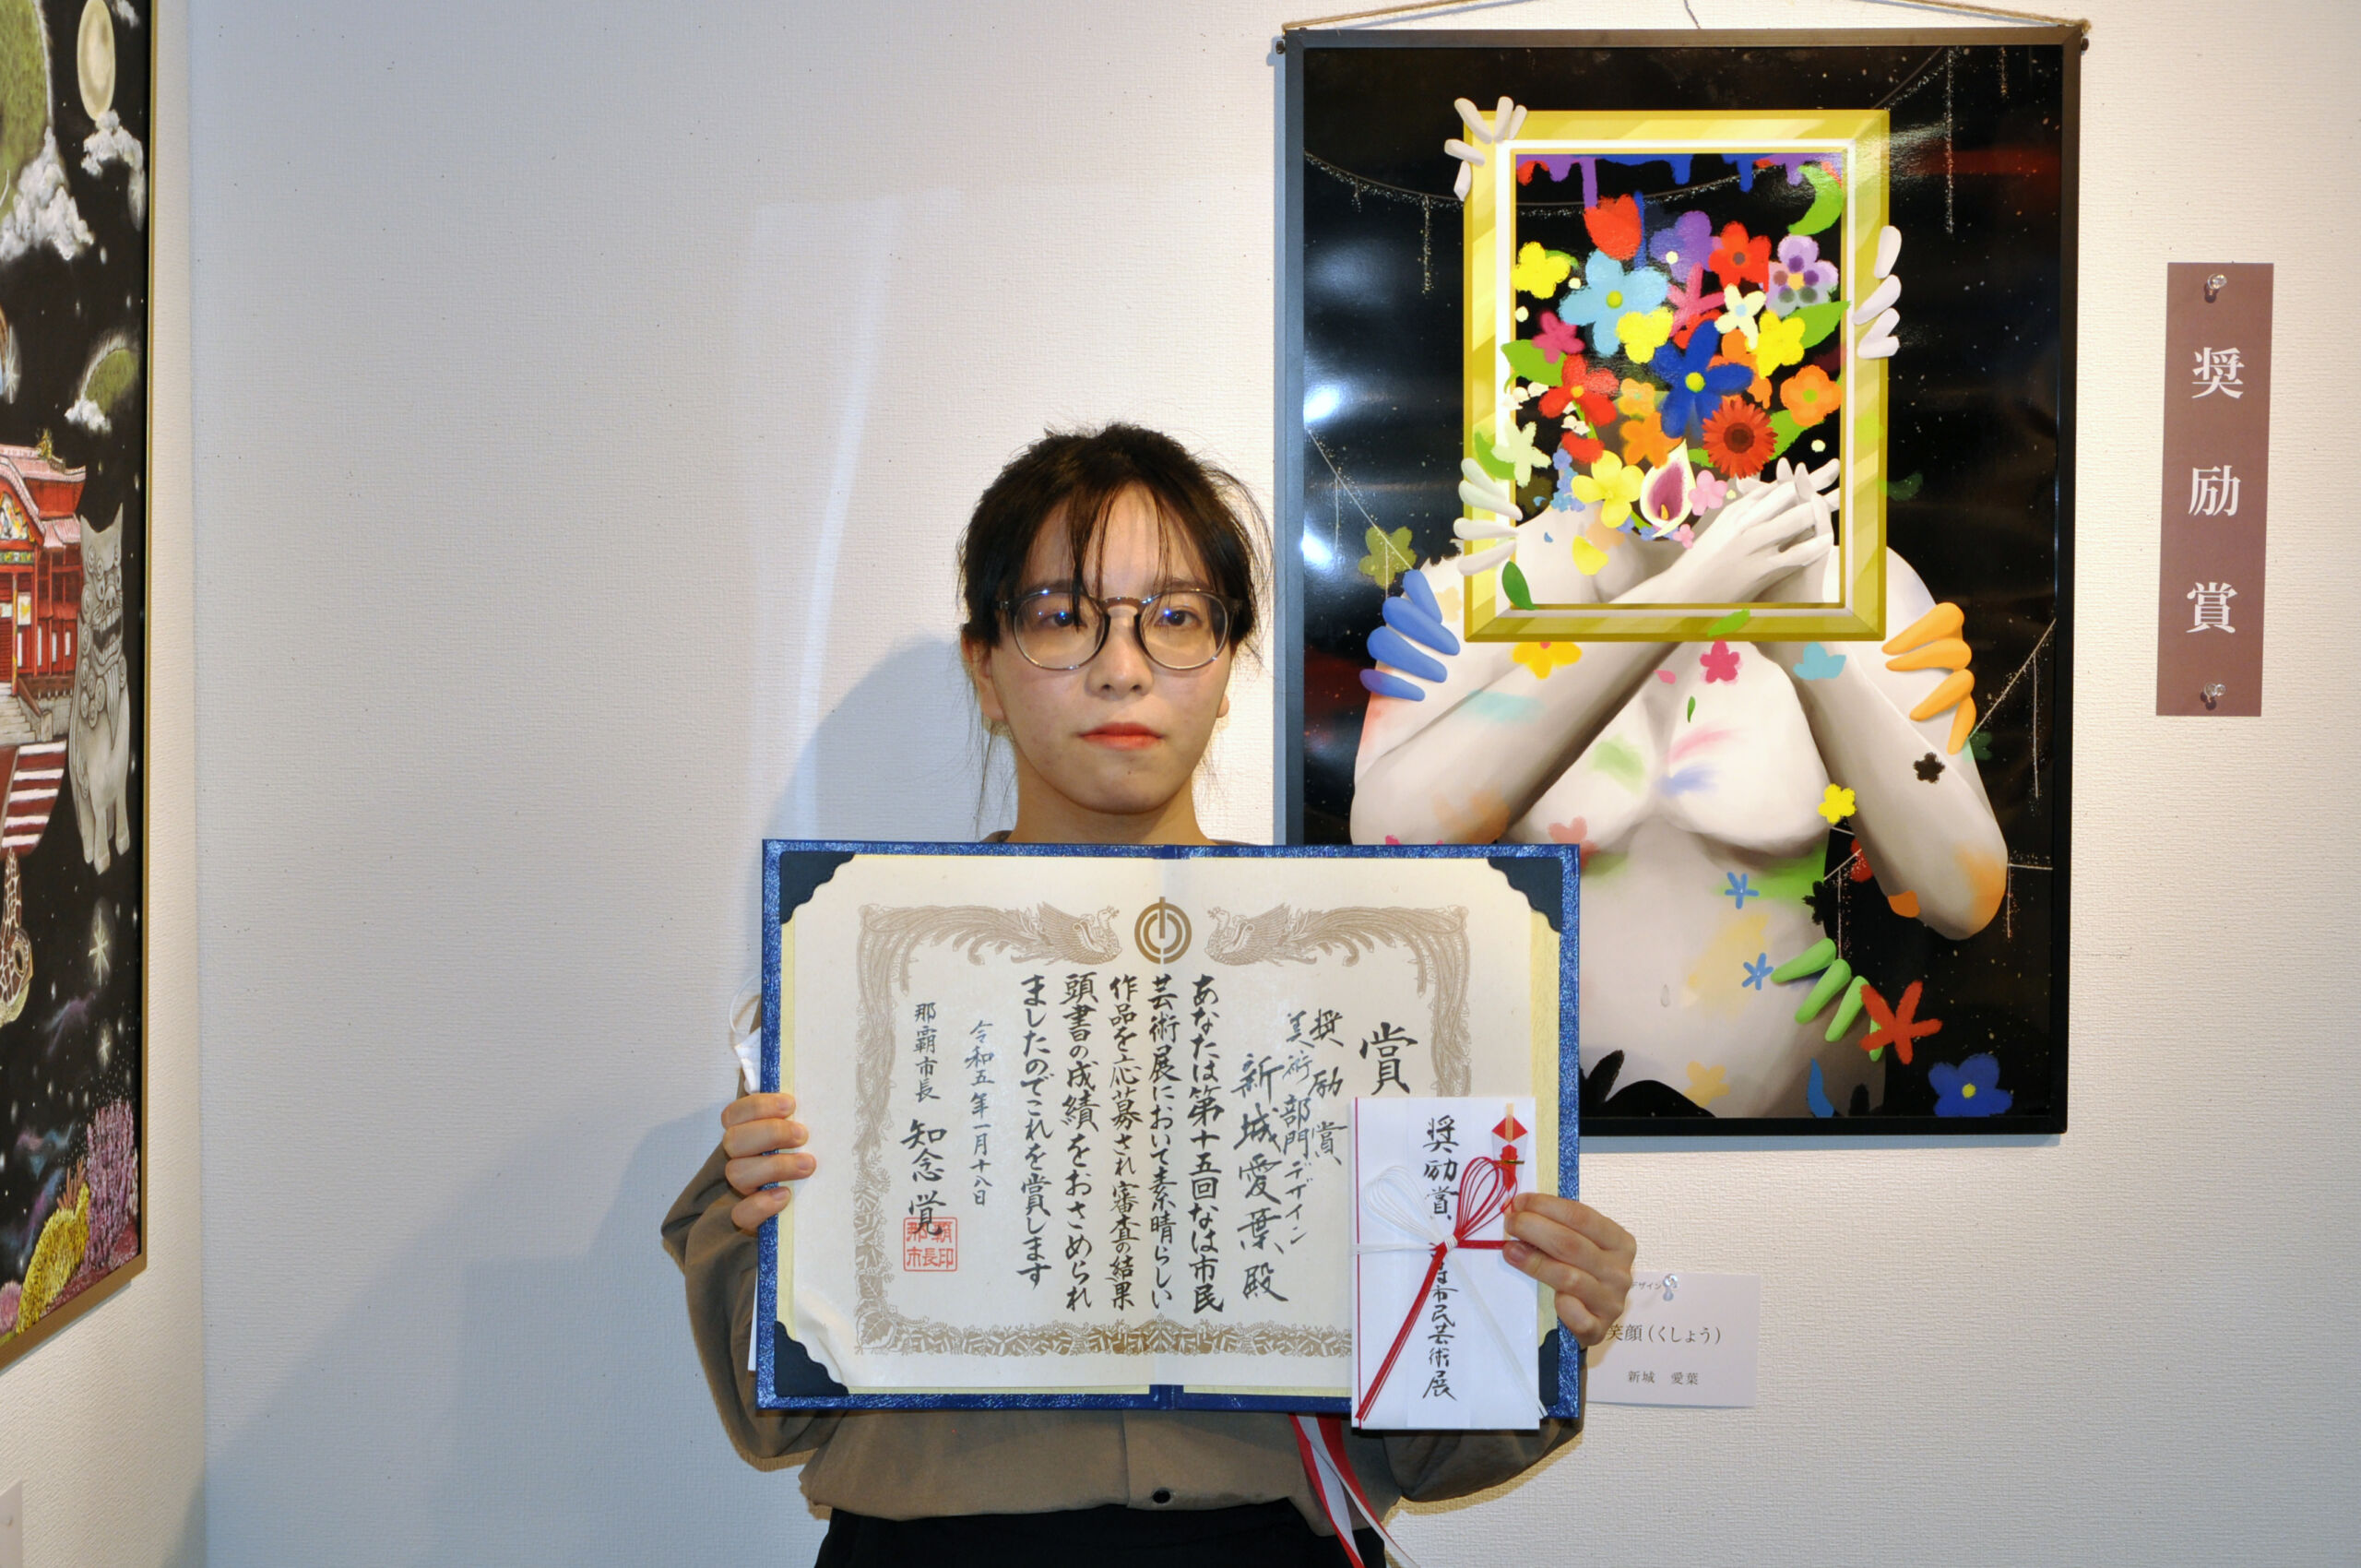 奨励賞
賞
奨励賞
美術部門デザイン
新城愛葉殿
あなたは第十五回なは市民
芸術展において素晴らしい
作品を応募され審査の結果
頭書の成績をおさめられ
ましたのでこれを賞します
令和五年一月十八日
那覇市長 知念 覚
那覇
市長印
奨励賞
は市民芸術展
デザイン
笑顔(くしょう)
新城 愛葉